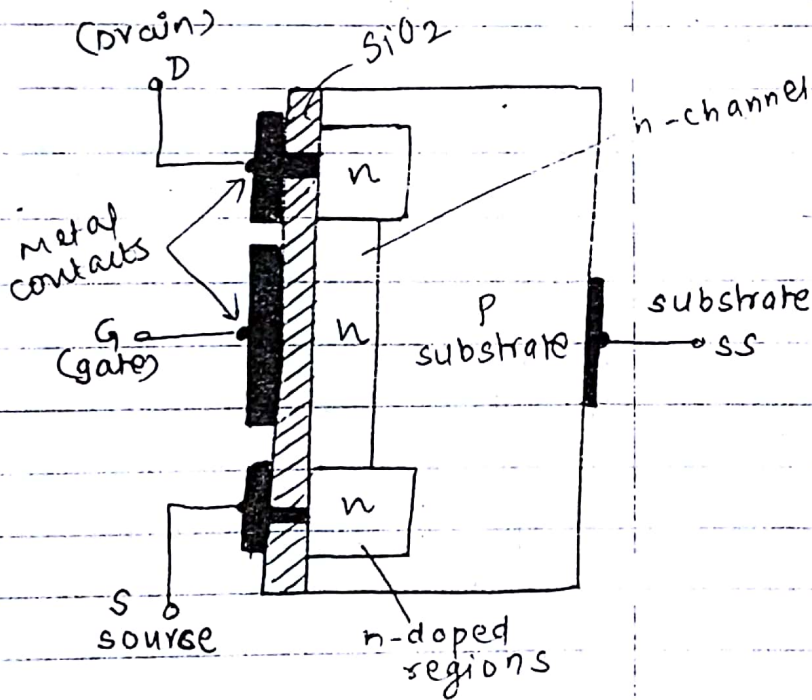 (Drain)
D
SiO2
n-channel
n
Metal
contacts
G
(gate)
n
P
substrate
substrate
SS
n
S
sourse
n-doped
regions